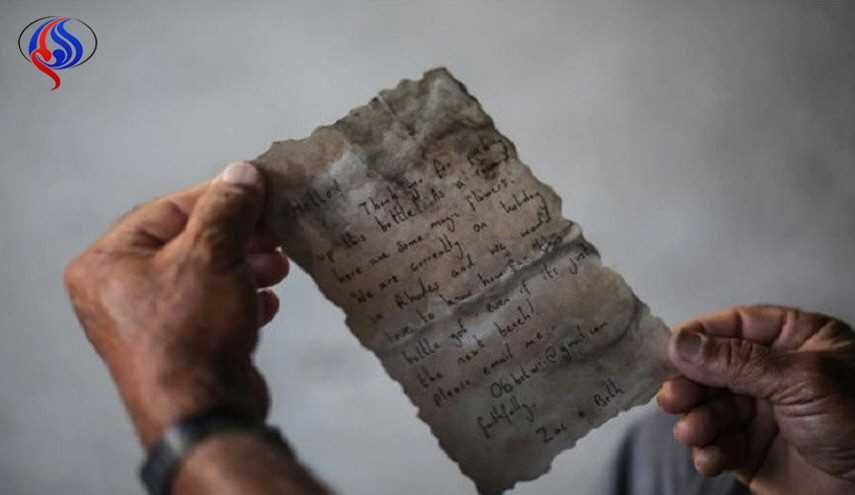 Hello! Thank you for picking
up this bottle! As a reward
here are some magic flowers.
We are currently on holiday
in Rhodes and we would
love to know how far this
bottle got, even if it's just
the next beach!
please email me.
@gmail.com
faithfully.
Zac + Beth